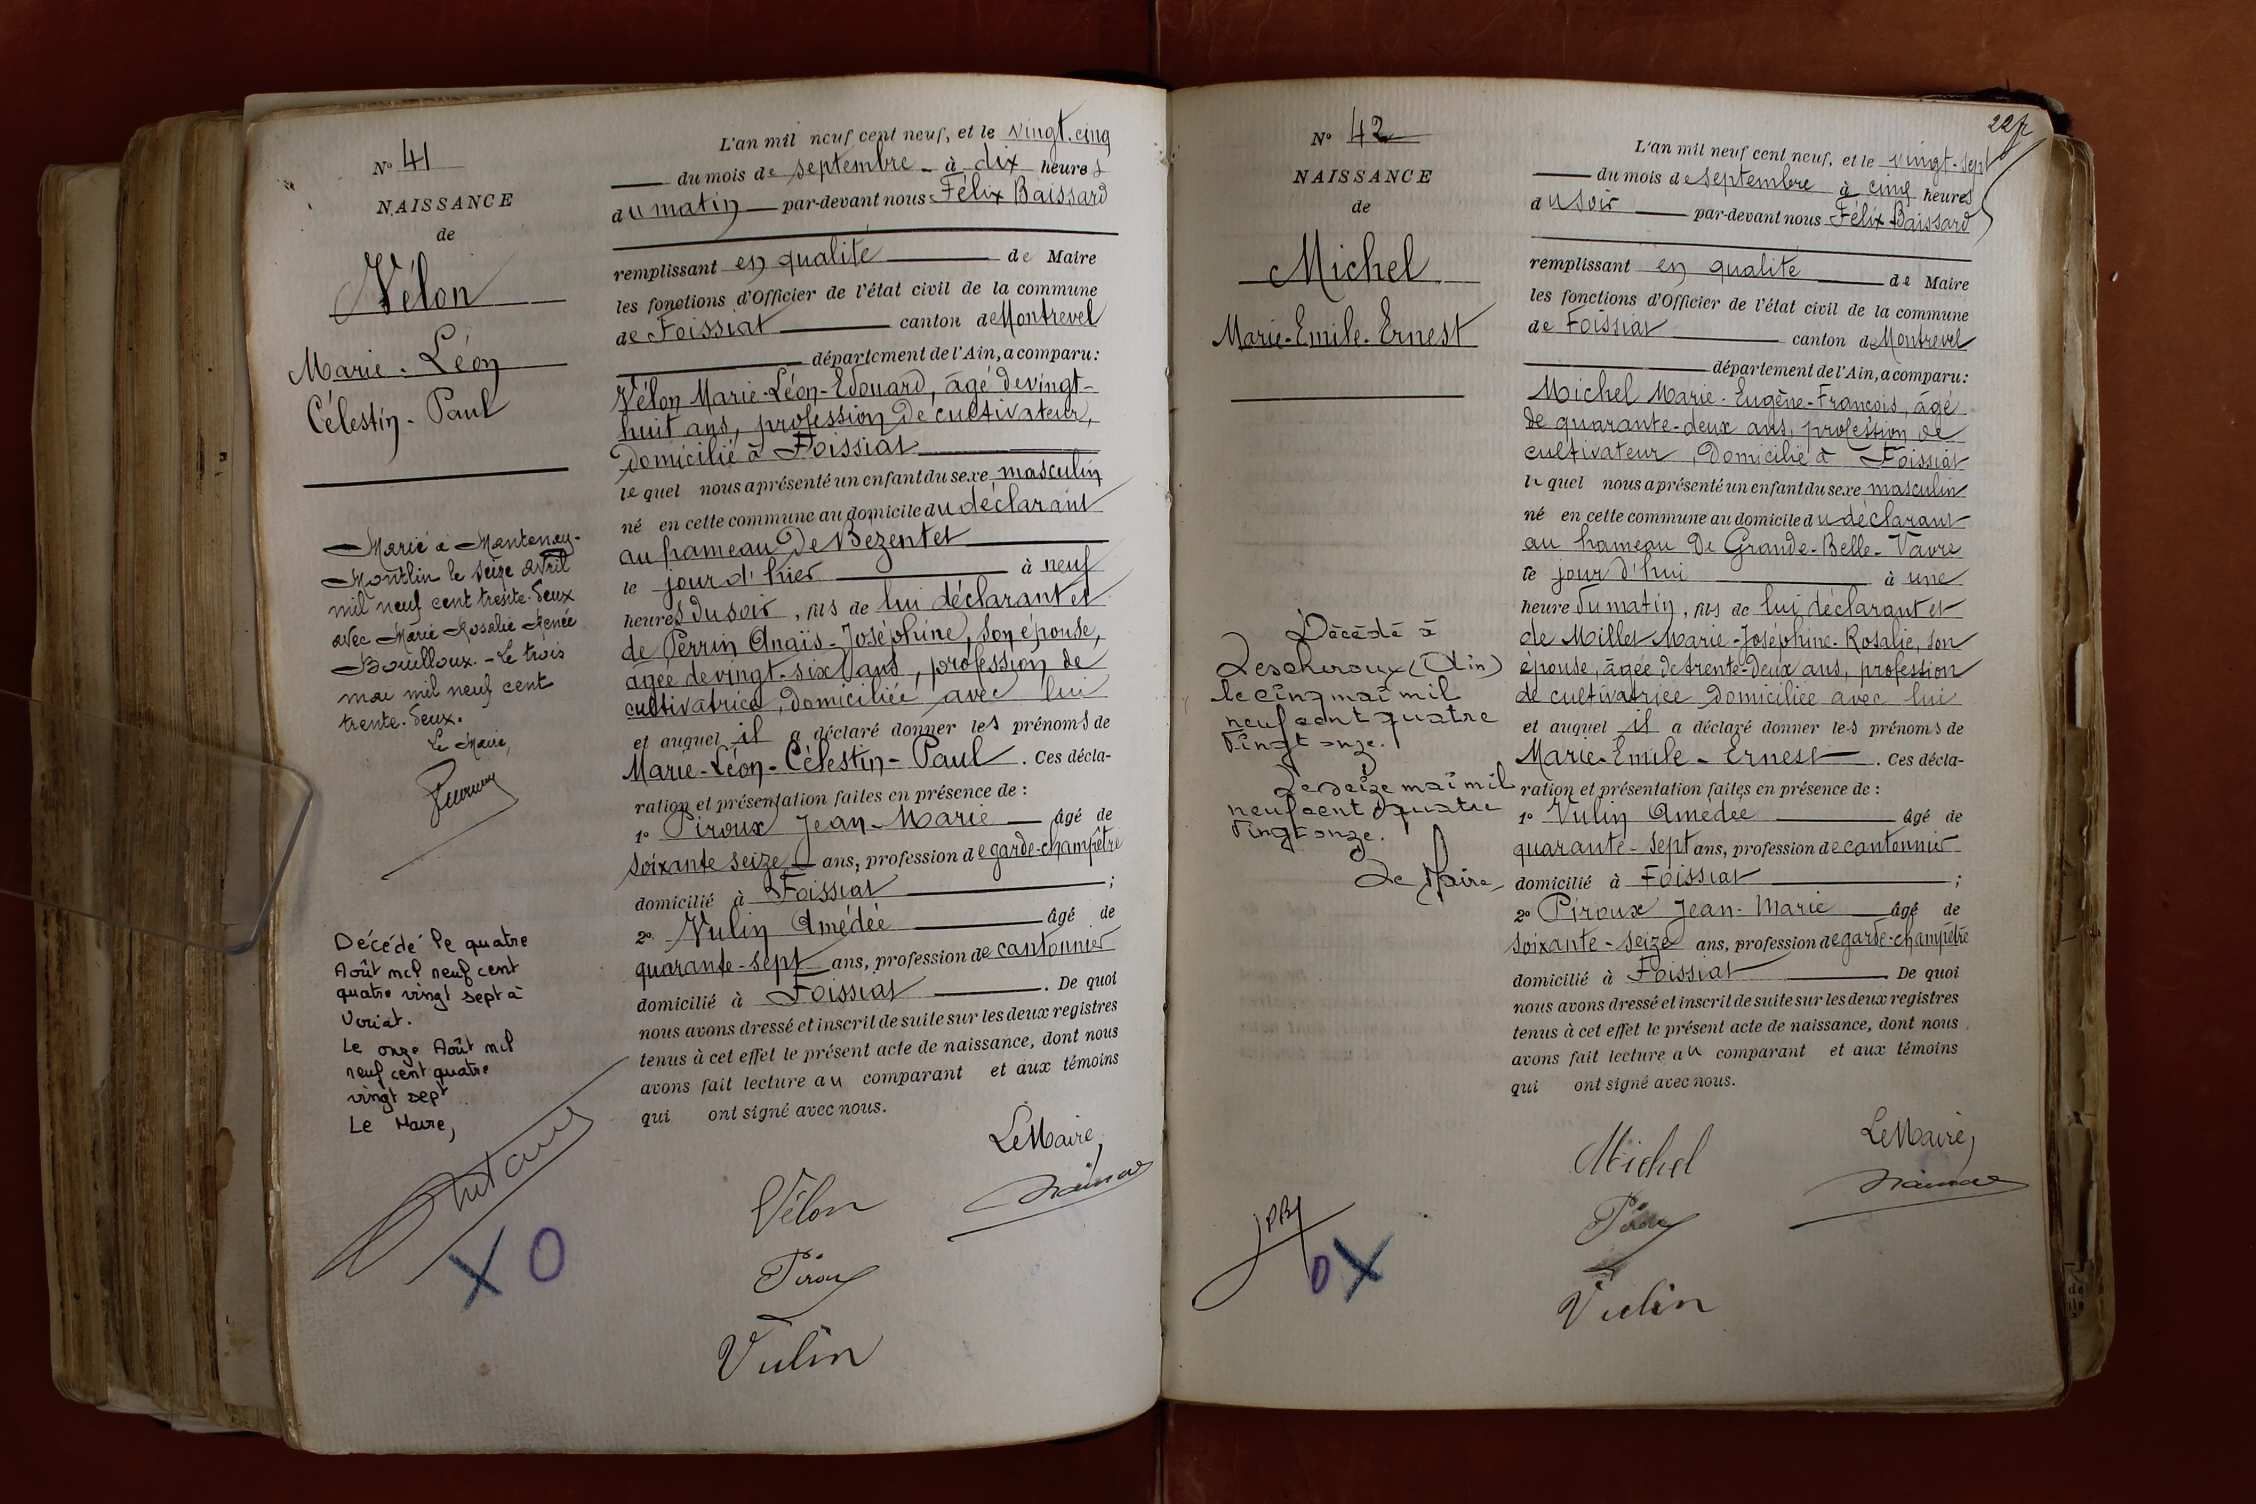 N° 41
NAISSANCE
de
Vélon
Marie-Léon
Célestin-Paul
Marié à Mantenay-
Montlin le seize avril
mil neuf cent trente-deux
avec Marie Rosalie Renée
Bouilloux. - Le trois
mai mil neuf cent
trente-deux.
Le Maire,
Décédé le quatre
Août mil neuf cent
quatre vingt sept à
Viriat.
Le onze Août mil
neuf cent quatre
vingt sept
Le Maire,
X O
L'an mil neuf cent neuf, et le vingt-cinq
du mois de septembre - à dix heures
du matin par-devant nous Félix Baissard
remplissant en qualité de Maire
les fonctions d'Officier de l'état civil de la commune
de Foissiat canton de Montrevel
département de l'Ain, a comparu:
Vélon Marie-Léon-Edouard, âgé de vingt-
huit ans, profession de cultivateur,
domicilié à Foissiat
lequel nous a présenté un enfant du sexe masculin
né en cette commune au domicile du déclarant
au hameau de Bezentet
le jour d'hier à neuf
heures du soir, fils de lui déclarant et
de Perrin Anaïs-Joséphine, son épouse,
âgée de vingt-six ans, profession de
cultivatrice, domiciliée avec lui
et auquel il a déclaré donner les prénoms de
Marie-Léon-Célestin-Paul. Ces décla-
ration et présentation faites en présence de :
1° Piroux Jean-Marie âgé de
soixante seize ans, profession de garde-champêtre
domicilié à Foissiat ;
2° Vulin Amédée âgé de
quarante-sept ans, profession de cantonnier
domicilié à Foissiat. De quoi
nous avons dressé et inscrit de suite sur les deux registres
tenus à cet effet le présent acte de naissance, dont nous
avons fait lecture au comparant et aux témoins
qui ont signé avec nous.
Le Maire,
Vélon
Piroux
Vulin
22
N° 42
NAISSANCE
de
Michel
Marie-Emile-Ernest
Décédé à
Lescheroux (Ain)
le cinq mai mil
neuf cent quatre
vingt onze.
Le seize mai mil
neuf cent quatre
vingt onze.
Le Maire,
O X
L'an mil neuf cent neuf, et le vingt-sept
du mois de septembre à cinq heures
du soir par-devant nous Félix Baissard
remplissant en qualité de Maire
les fonctions d'Officier de l'état civil de la commune
de Foissiat canton de Montrevel
département de l'Ain, a comparu:
Michel Marie-Eugène-François, âgé
de quarante-deux ans, profession de
cultivateur, domicilié à Foissiat
lequel nous a présenté un enfant du sexe masculin
né en cette commune au domicile du déclarant
au hameau de Grande-Belle-Vavre
le jour d'hui à une
heure du matin, fils de lui déclarant et
de Millet Marie-Joséphine-Rosalie, son
épouse, âgée de trente-deux ans, profession
de cultivatrice domiciliée avec lui
et auquel il a déclaré donner les prénoms de
Marie-Emile-Ernest. Ces décla-
ration et présentation faites en présence de :
1° Vulin Amédée âgé de
quarante-sept ans, profession de cantonnier
domicilié à Foissiat ;
2° Piroux Jean-Marie âgé de
soixante-seize ans, profession de garde-champêtre
domicilié à Foissiat De quoi
nous avons dressé et inscrit de suite sur les deux registres
tenus à cet effet le présent acte de naissance, dont nous
avons fait lecture au comparant et aux témoins
qui ont signé avec nous.
Le Maire,
Michel
Piroux
Vulin